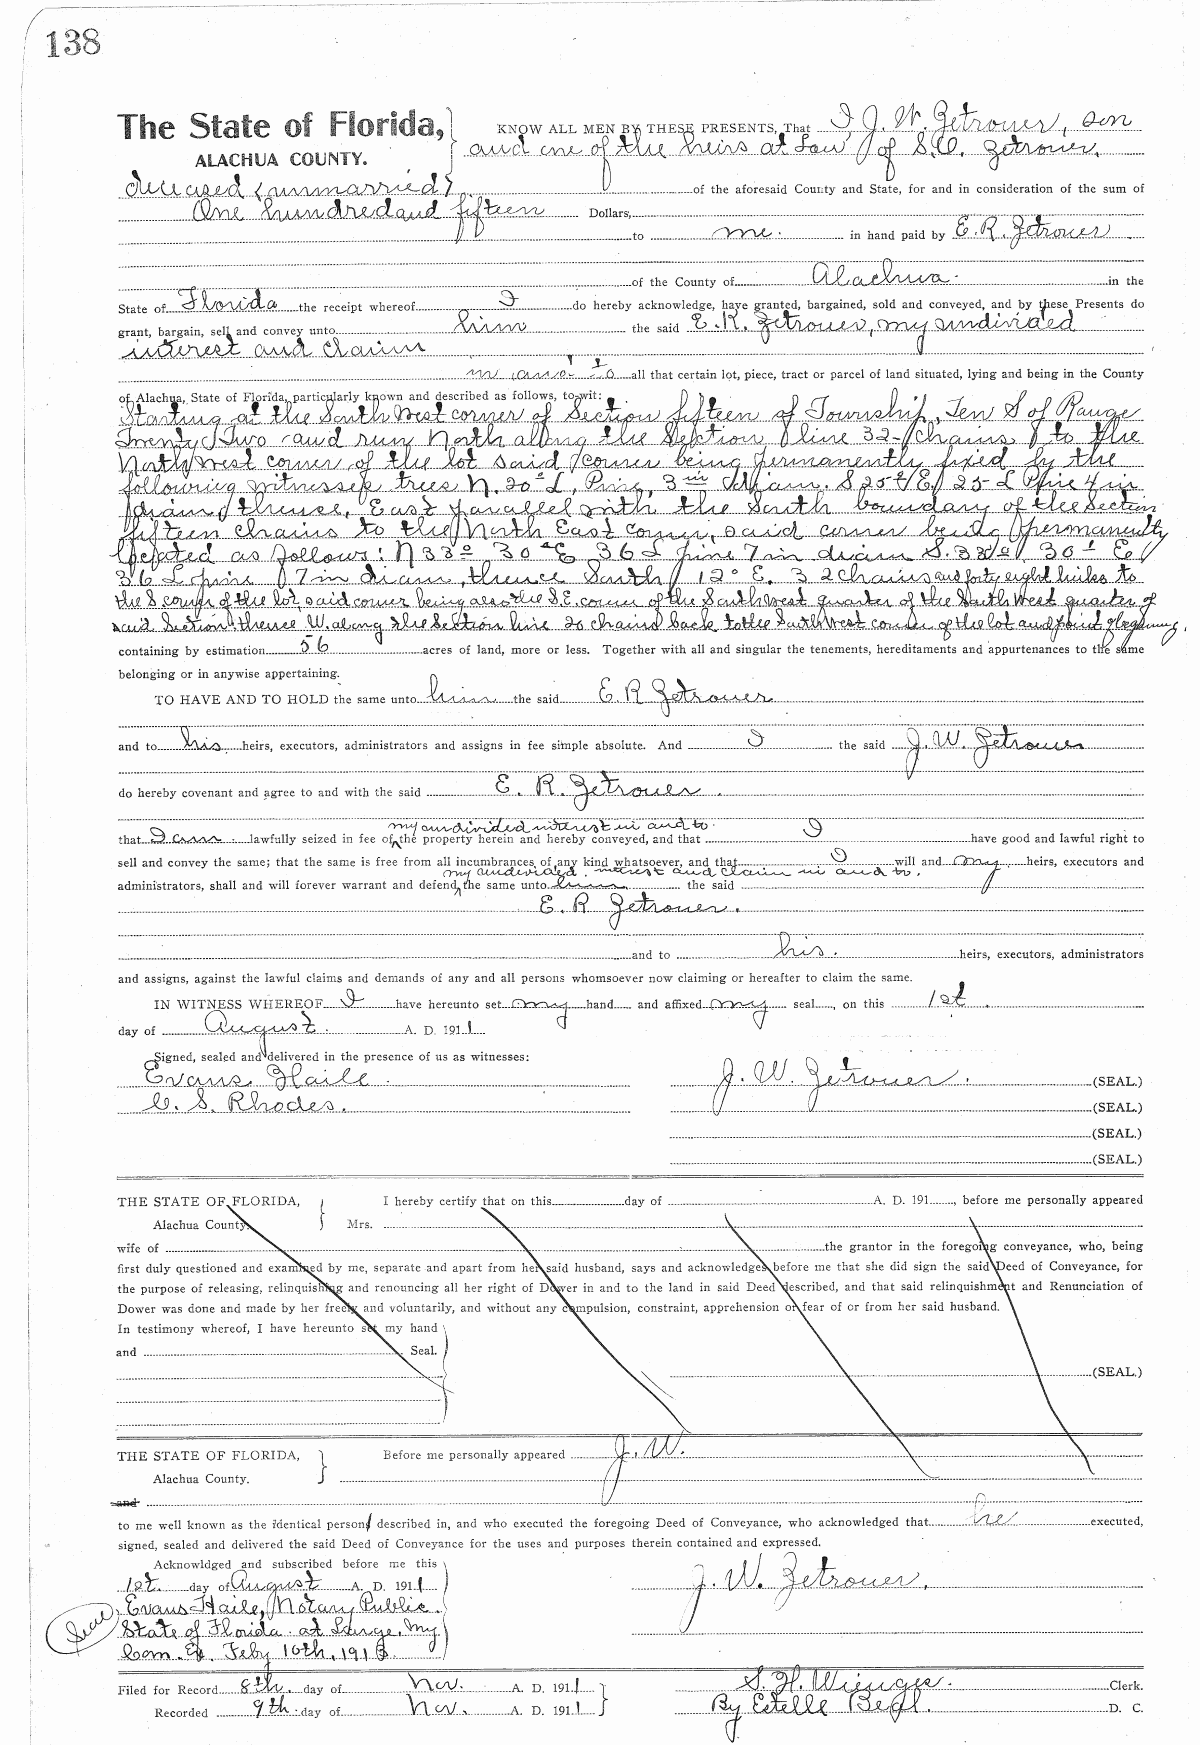 138
The State of Florida, KNOW ALL MEN BY THESE PRESENTS, That I, J. W. Zetrouer, son
ALACHUA COUNTY. and one of the heirs at Law of S.C. Zetrouer,
deceased (unmarried) of the aforesaid County and State, for and in consideration of the sum of
One hundred and fifteen Dollars,
to me. in hand paid by E. R. Zetrouer
of the County of Alachua in the
State of Florida the receipt whereof I do hereby acknowledge, have granted, bargained, sold and conveyed, and by these Presents do
grant, bargain, sell and convey unto him the said E. R. Zetrouer, my undivided
interest and claim
in and to all that certain lot, piece, tract or parcel of land situated, lying and being in the County
of Alachua, State of Florida, particularly known and described as follows, to wit:
Starting at the South West corner of Section fifteen of Township Ten S of Range
Twenty Two and run North along the Section line 32 chains to the
North West corner of the lot said corner being permanently fixed by the
following witnesses trees N. 20° L, Pine, 3 in diam. S 25 E 25 L Pine 4 in
diam, thence, East parallel with the South boundary of the Section
fifteen chains to the North East corner, said corner being permanently
located as follows: N 33° 30' E 36 L pine 7 in diam S. 33° 30' E
36 L pine 7 in diam, thence South 12° E. 32 chains and forty eight links to
the S corner of the lot, said corner being also the S.E. corner of the South West quarter of the South West quarter of
said Section, thence W. along the Section line 20 chains back to the South West corner of the lot and point of beginning,
containing by estimation 56 acres of land, more or less. Together with all and singular the tenements, hereditaments and appurtenances to the same
belonging or in anywise appertaining.
TO HAVE AND TO HOLD the same unto him the said E. R Zetrouer
and to his heirs, executors, administrators and assigns in fee simple absolute. And I the said J. W. Zetrouer
do hereby covenant and agree to and with the said E. R. Zetrouer.
my undivided interest in and to
that I am lawfully seized in fee of the property herein and hereby conveyed, and that I have good and lawful right to
sell and convey the same; that the same is free from all incumbrances of any kind whatsoever, and that I will and my heirs, executors and
my undivided interest and claim in and to.
administrators, shall and will forever warrant and defend the same unto him the said
E. R Zetrouer.
and to his. heirs, executors, administrators
and assigns, against the lawful claims and demands of any and all persons whomsoever now claiming or hereafter to claim the same.
IN WITNESS WHEREOF I have hereunto set my hand and affixed my seal, on this 1st
day of August. A. D. 1911
Signed, sealed and delivered in the presence of us as witnesses:
Evans Haile. J. W. Zetrouer. (SEAL.)
C. S. Rhodes. (SEAL.)
(SEAL.)
(SEAL.)
THE STATE OF FLORIDA, I hereby certify that on this day of A. D. 191, before me personally appeared
Alachua County. Mrs.
wife of the grantor in the foregoing conveyance, who, being
first duly questioned and examined by me, separate and apart from her said husband, says and acknowledges before me that she did sign the said Deed of Conveyance, for
the purpose of releasing, relinquishing and renouncing all her right of Dower in and to the land in said Deed described, and that said relinquishment and Renunciation of
Dower was done and made by her freely and voluntarily, and without any compulsion, constraint, apprehension or fear of or from her said husband.
In testimony whereof, I have hereunto set my hand
and Seal.
(SEAL.)
THE STATE OF FLORIDA, Before me personally appeared J. W.
Alachua County.
and
to me well known as the identical person described in, and who executed the foregoing Deed of Conveyance, who acknowledged that he executed,
signed, sealed and delivered the said Deed of Conveyance for the uses and purposes therein contained and expressed.
Acknowldged and subscribed before me this
1st. day of August A. D. 1911 J. W. Zetrouer.
Evans Haile, Notary Public.
(Seal) State of Florida at Large. My
Com. Ex. Feby 16th, 1913.
Filed for Record 8th. day of Nov. A. D. 1911 S. H. Wienges. Clerk.
Recorded 9th. day of Nov. A. D. 1911 By Estelle D. C.